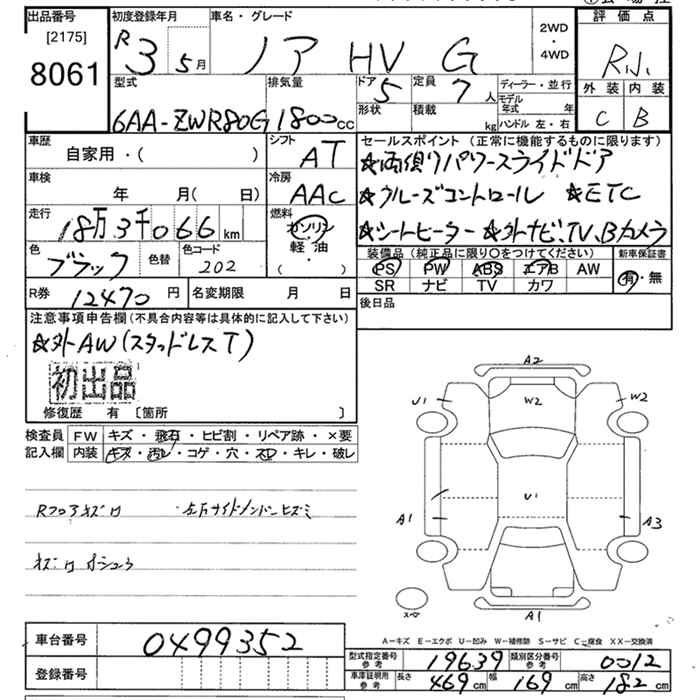 出品番号 初度登録年月 車名・グレード 2WD・4WD 評価点
[2175]
8061
R3 5月 ノア HV G
外装 内装
C B
型式 排気量 ドア 5 定員 7人 ディーラー・並行
6AA-ZWR80G 1800cc 形状 積載 kg モデル年式 年
ハンドル 左・右
車歴 シフト セールスポイント (正常に機能するものに限ります)
自家用・( ) AT ☆両側パワースライドドア
車検 冷房 ☆クルーズコントロール ☆ETC
年 月( 日) AAC
走行 燃料 ☆シートヒーター ☆外ナビ、TV、Bカメラ
18万3千066km ガソリン
軽油
( )
色 色替 色コード 装備品 (純正品に限り○をつけてください) 新車保証書
ブラック 202 PS PW ABS エアB AW 有・無
SR ナビ TV カワ
R券 12470円 名変期限 月 日 後日品
注意事項申告欄 (不具合内容等は具体的に記入して下さい)
☆外AW(スタッドレスT)
初出品
修復歴 有 〔箇所 〕
検査員 FW キズ・飛石・ヒビ割・リペア跡・×要
記入欄 内装 キズ・汚レ・コゲ・穴・スレ・キレ・破レ
Rフロアキズ
A2
U1 W2 W2
A1 U1 A3
A1
A-キズ E-エクボ U-凹み W-補修跡 S-サビ C-腐食 XX-交換済
車台番号 0499352
登録番号
型式指定番号 参考 19639 類別区分番号 参考 0012
車庫証明用 参考 長さ 469cm 幅 169cm 高さ 182cm